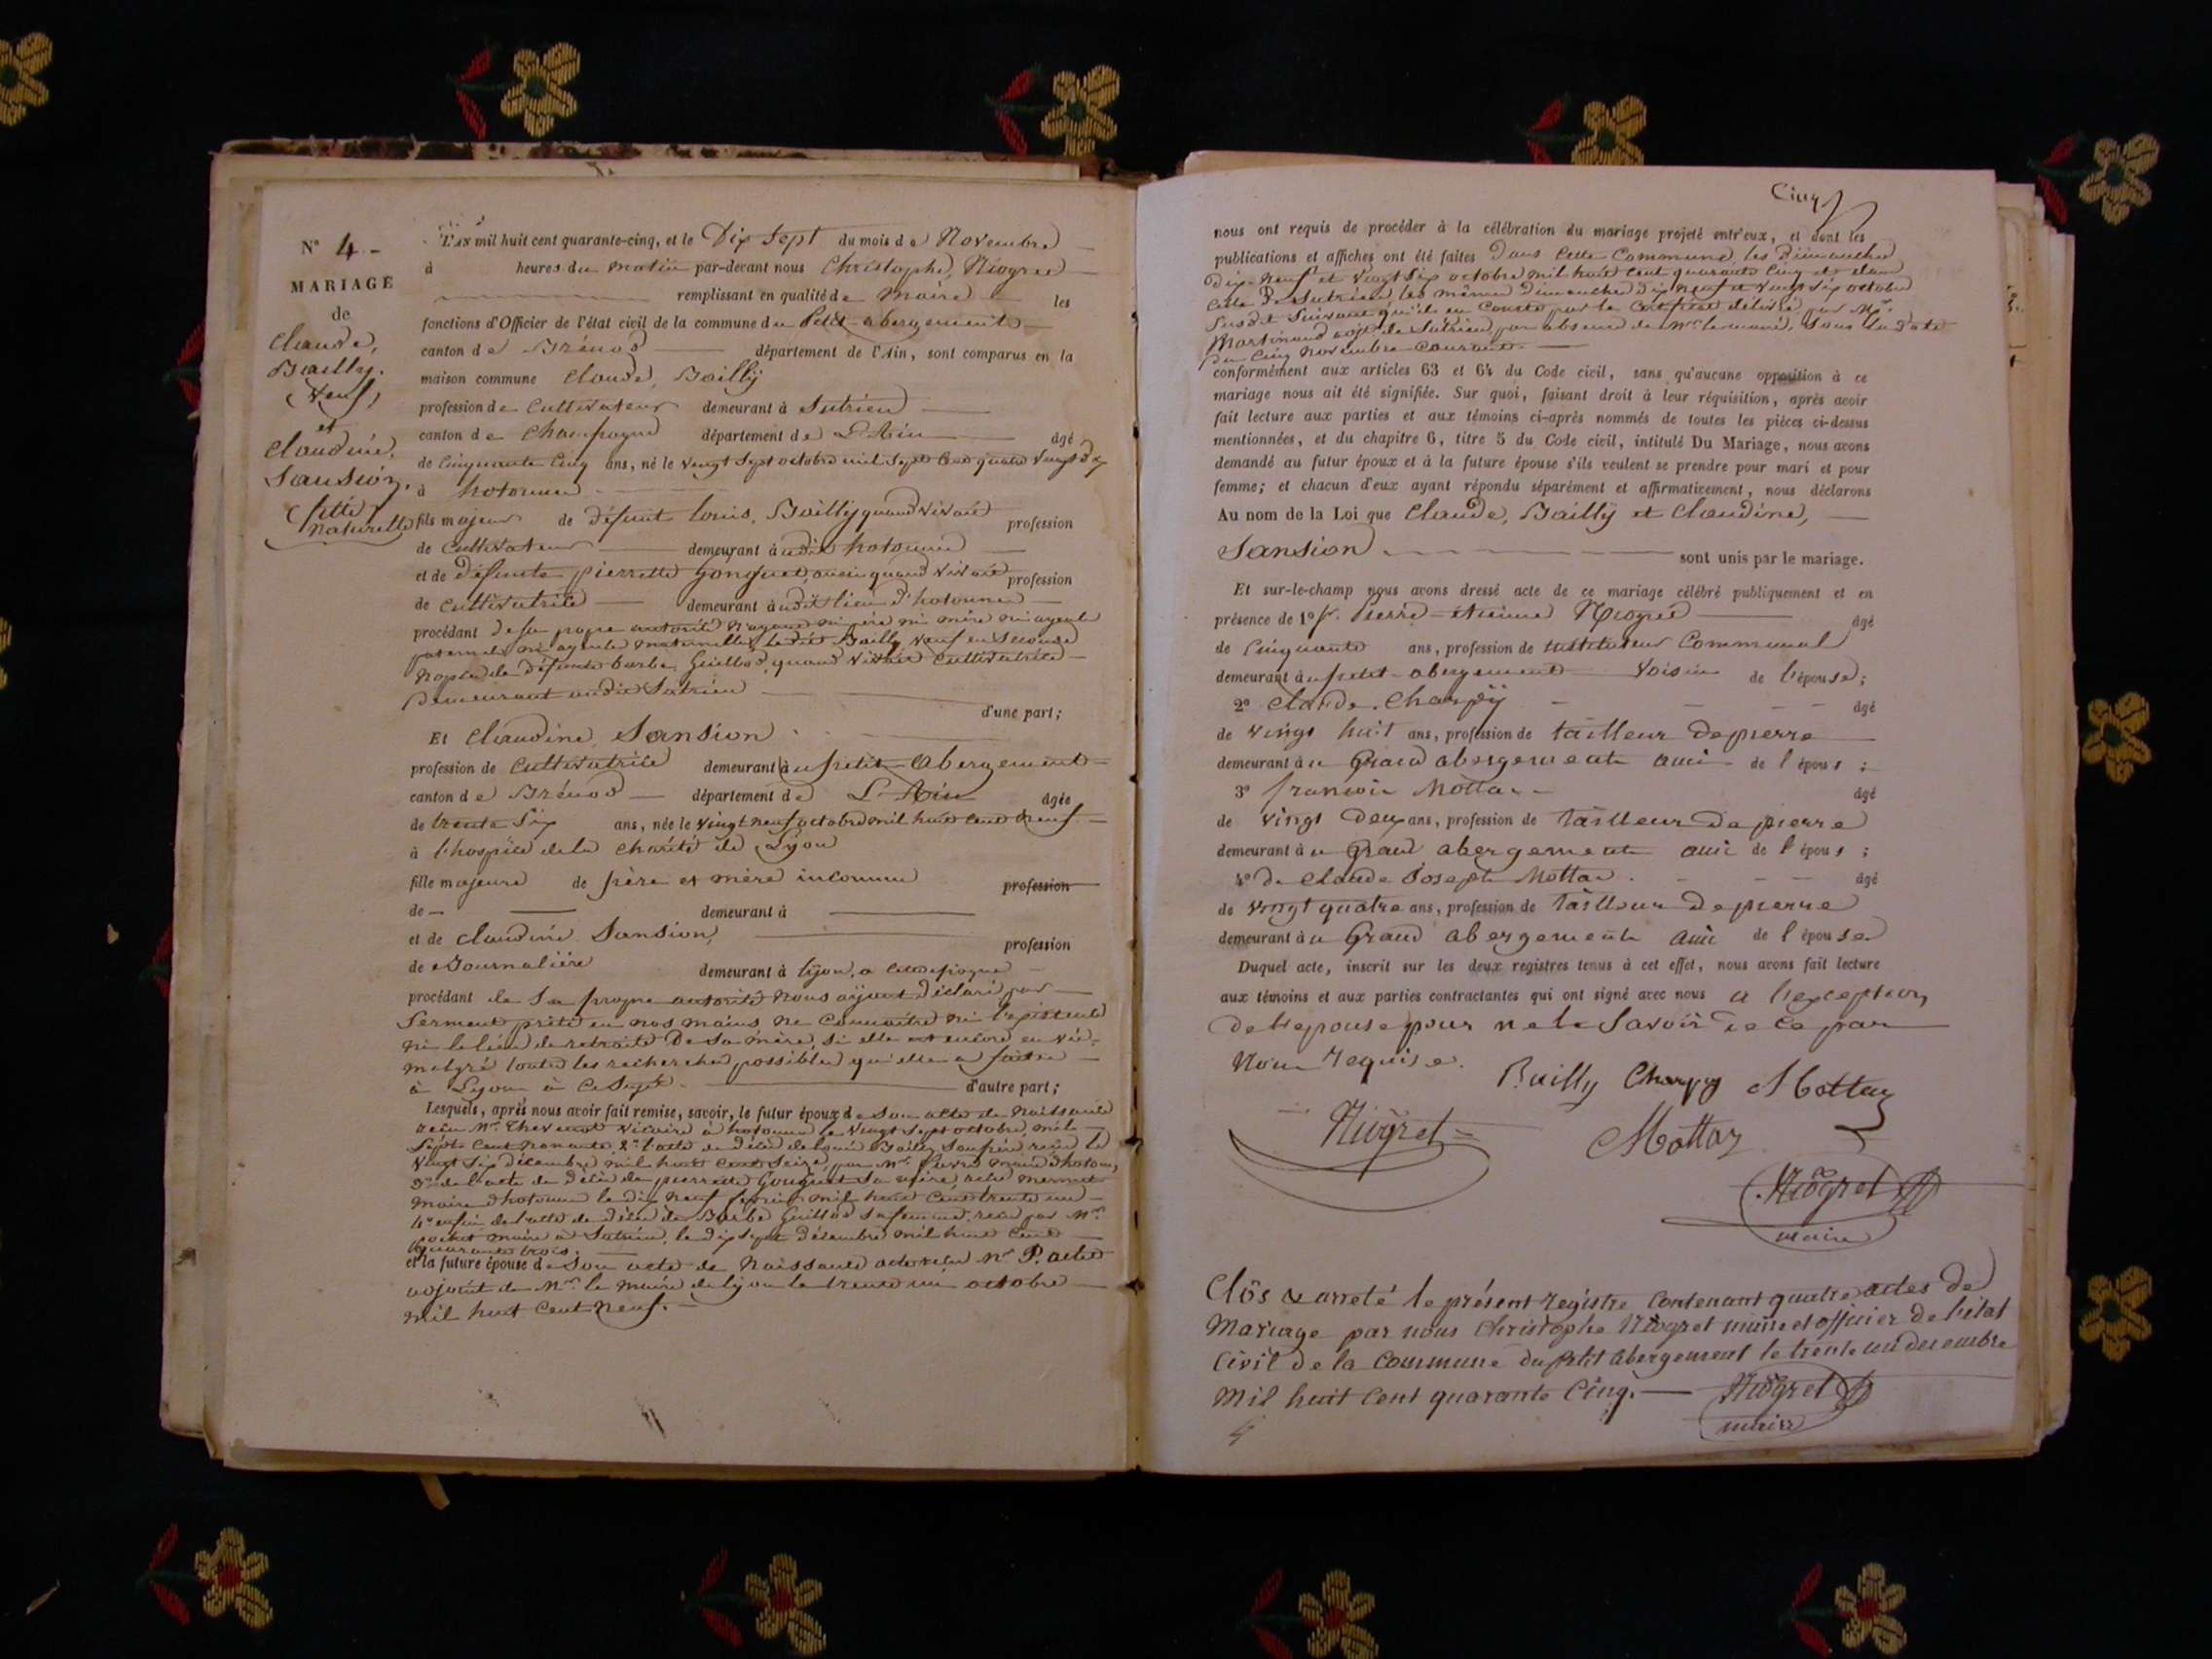 N° 4.-
MARIAGE
de
Claude,
Bailly.
(Veuf)
et
Claudine,
Sansion.
(fille
naturelle)
L'AN mil huit cent quarante-cinq, et le Dix Sept du mois de Novembre
à heures du matin par-devant nous Christophe, Niogret
remplissant en qualité de Maire les
fonctions d'Officier de l'état civil de la commune du Petit-abergement
canton de Brénod département de l'Ain, sont comparus en la
maison commune Claude, Bailly
profession de Cultivateur demeurant à Sutrieu
canton de Champagne département de L'Ain âgé
de Cinquante Cinq ans, né le vingt Sept octobre mil Sept Cent quatre vingt dix
à hotonne
fils majeur de défunt Louis, Bailly quand vivait profession
de Cultivateur demeurant audit hotonne
et de défunte pierrette Gonguet, aussi quand vivait profession
de Cultivatrice demeurant audit lieu d'hotonne
procédant de sa propre autorité n'ayant ni père ni mère ni ayeuls
paternels ni ayeuls maternelles, ledit Bailly, veuf en Seconde
Noces de défunte barbe, Guillod, quand vivait Cultivatrice
Demeurant audit Sutrieu
d'une part;
Et Claudine, Sansion
profession de Cultivatrice demeurant au petit-Abergement
canton de Brénod département de L'Ain âgée
de trente Six ans, née le vingt neuf octobre mil huit cent neuf
à l'hospice de la Charité de Lyon
fille majeure de père et mère inconnu profession
de demeurant à
et de Claudine Sansion, profession
de Journalière demeurant à Lyon, a
procédant de Sa propre autorité nous ayant déclaré par
Serment prêté en nos mains, ne Connaître ni l'existence
ni le lieu de retraite De Sa mère, si elle est encore en vie,
malgré toutes les recherches possibles qu'elle a faites
à Lyon à ce Sujet. d'autre part;
Lesquels, après nous avoir fait remise, savoir, le futur époux de Son acte de Naissance
reçu Mr. Thevenot vicaire à hotonne le vingt Sept octobre mil
Sept Cent nonante, 2° l'acte de décès de Louis Bailly Son père, reçu le
vingt Six décembre mil huit Cent Seize, par Mr. maire d'hotonne,
3° de l'acte de décès de pierrette Gonguet Sa mère, reçu Mermet
Maire d'hotonne le dix neuf février mil huit Cent trente un
4° enfin de l'acte de décès de Barbe Guillod Sa femme, reçu par Mr.
maire à Sutrieu, le dix Sept décembre mil huit Cent
quarante trois.
et la future épouse de Son acte de Naissance reçu Mr P.
adjoint de Mr. le Maire de Lyon le trente un octobre
mil huit Cent neuf.
Cinq
nous ont requis de procéder à la célébration du mariage projeté entr'eux, et dont les
publications et affiches ont été faites Dans Cette Commune, les Dimanches
dix-Neuf et vingt Six octobre mil huit Cent quarante Cinq et dans
Celle de Sutrieu, les même Dimanches dix neuf et vingt Six octobre
Susdit Suivant qu'il en Conste par le Certificat délivré par Mr.
Martinand adjt de Sutrieu, par absence de Mr le maire, Sous la date
Du Cinq Novembre Courant.
conformément aux articles 63 et 64 du Code civil, sans qu'aucune opposition à ce
mariage nous ait été signifiée. Sur quoi, faisant droit à leur réquisition, après avoir
fait lecture aux parties et aux témoins ci-après nommés de toutes les pièces ci-dessus
mentionnées, et du chapitre 6, titre 5 du Code civil, intitulé Du Mariage, nous avons
demandé au futur époux et à la future épouse s'ils veulent se prendre pour mari et pour
femme; et chacun d'eux ayant répondu séparément et affirmativement, nous déclarons
Au nom de la Loi que Claude, Bailly et Claudine,
Sansion sont unis par le mariage.
Et sur-le-champ nous avons dressé acte de ce mariage célébré publiquement et en
présence de 1° Pierre-Etienne Niogret âgé
de Cinquante ans, profession de Instituteur Communal
demeurant au petit-abergement voisin de l'épouse;
2° Claude. Charpÿ âgé
de vingt huit ans, profession de tailleur de pierre
demeurant au Grand abergement ami de l'époux;
3° françois Mottaz âgé
de vingt deux ans, profession de tailleur de pierre
demeurant au Grand abergement ami de l'époux;
4° de Claude Joseph Mottaz. âgé
de vingt quatre ans, profession de tailleur de pierre
demeurant au Grand abergement ami de l'épouse
Duquel acte, inscrit sur les deux registres tenus à cet effet, nous avons fait lecture
aux témoins et aux parties contractantes qui ont signé avec nous a l'exception
De l'épouse pour ne le Savoir de ce par
Nous requise.
Bailly Charpy Mottaz
Niogret
Mottaz
Niogret
maire
Clôs & arreté le présent registre Contenant quatre actes de
Mariage par nous Christophe Niogret maire et officier de l'état
Civil de la Commune du Petit Abergement le trente un decembre
Mil huit Cent quarante Cinq. Niogret
maire
4